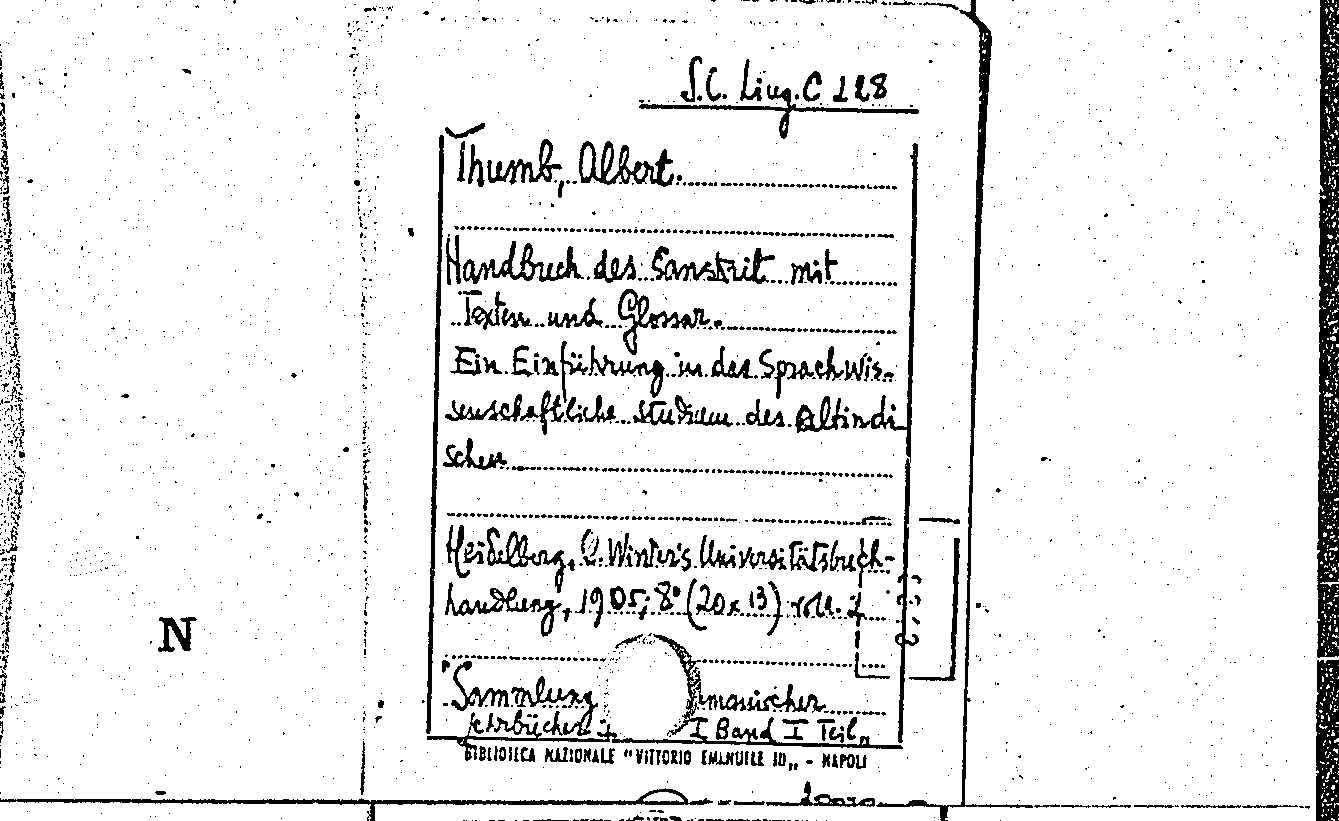 S.C. Ling. C 128
Thumb, Albert.
Handbuch des Sanskrit mit
Texten und Glossar.
Ein Einführung in das Sprachwis-
senschaftliche studium des Altindi
schen
Heidelberg, C. Winter's Universitätsbuch-
handlung, 1905; 8° (20x13) voll. 2
N
"Sammlung manischer
Lehrbücher I Band I Teil"
BIBLIOTECA NAZIONALE "VITTORIO EMANUELE III" - NAPOLI